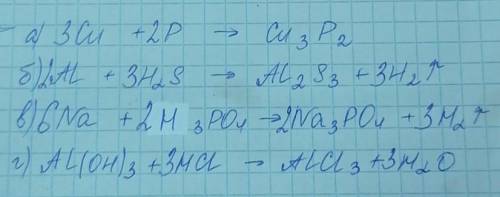 а) 3Cu + 2P → Cu₃P₂
б) 2Al + 3H₂S → Al₂S₃ + 3H₂↑
в) 6Na + 2H₃PO₄ → 2Na₃PO₄ + 3H₂↑
г) Al(OH)₃ + 3HCl → AlCl₃ + 3H₂O